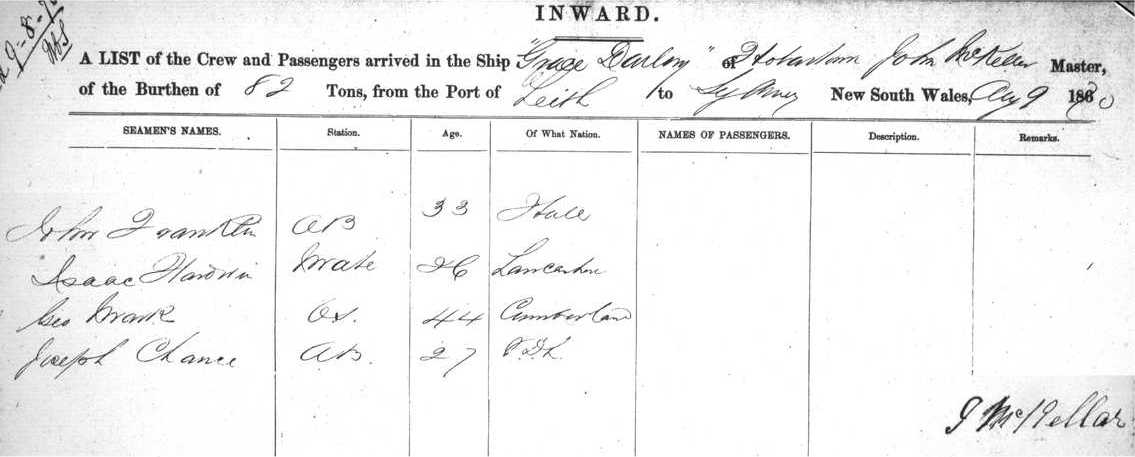 9-8-70
INWARD.
A LIST of the Crew and Passengers arrived in the Ship "Grace Darling" of Hobartown John McKellar Master,
of the Burthen of 82 Tons, from the Port of Leith to Sydney New South Wales, Aug 9 1870
SEAMEN'S NAMES. Station. Age. Of What Nation. NAMES OF PASSENGERS. Description. Remarks.
John Franklin AB 33 Hull
Isaac Mate 26 Lancashire
Geo Mark 44 Cumberland
Joseph Chance AB. 27
J McKellar